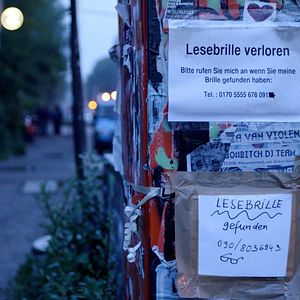 Lesebrille verloren
Bitte rufen Sie mich an wenn Sie meine
Brille gefunden haben:
Tel. : 0170 5555 678 091
A VAN VIOLEN
BOMBITCH DJ TEAM
LESEBRILLE
gefunden
030/8036943